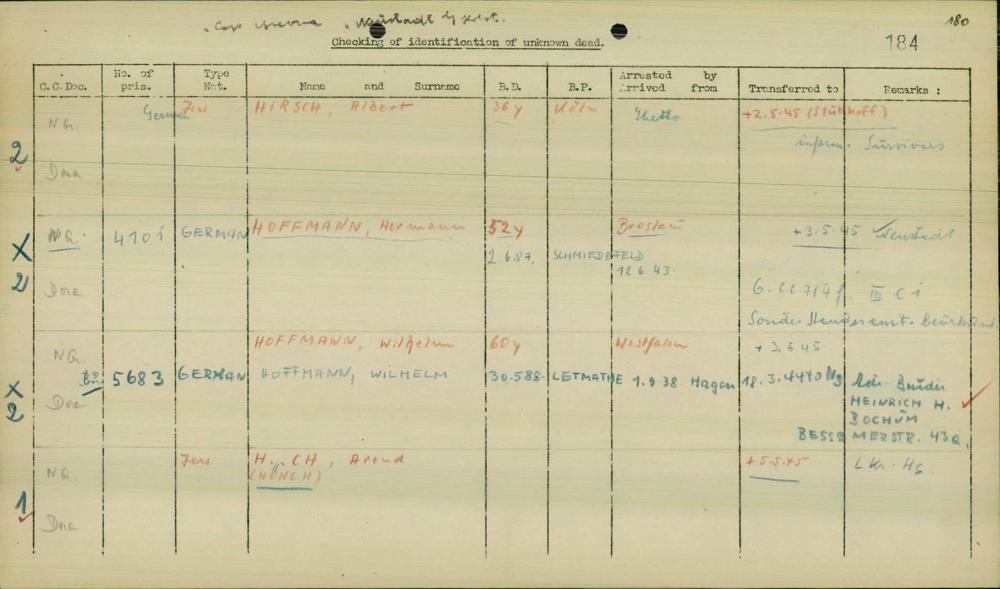 "Cap Arcona" "Neustadt 180
Checking of identification of unknown dead. 184
C.C.Doc. No. of pris. Type Nat. Name and Surname B.D. B.P. Arrested by Arrived from Transferred to Remarks :
NG. German Jew HIRSCH, Albert 36y Köln Ghetto +2.5.45 (Stutthoff)
2 inform. Survivors
Dora
X NG. 4101 GERMAN HOFFMANN, Hermann 52y Breslau +3.5.45 Neustadt
2.6.87. SCHMIEDEFELD 12 6.43.
2 Dora III C i
NG. HOFFMANN, Wilhelm 60y Westfalen + 3.5.45
X Bu 5683 GERMAN HOFFMANN, WILHELM 30.588. LETMATHE 1.9.38 Hagen 18.3.44 Adr. Bruder
2 Dora HEINRICH H.
BOCHUM
BESSEMERSTR. 43a.
NG. Jew H...CH, Arend +5.5.45 L Kr. Hg.
(HÜNCH)
1 Dora